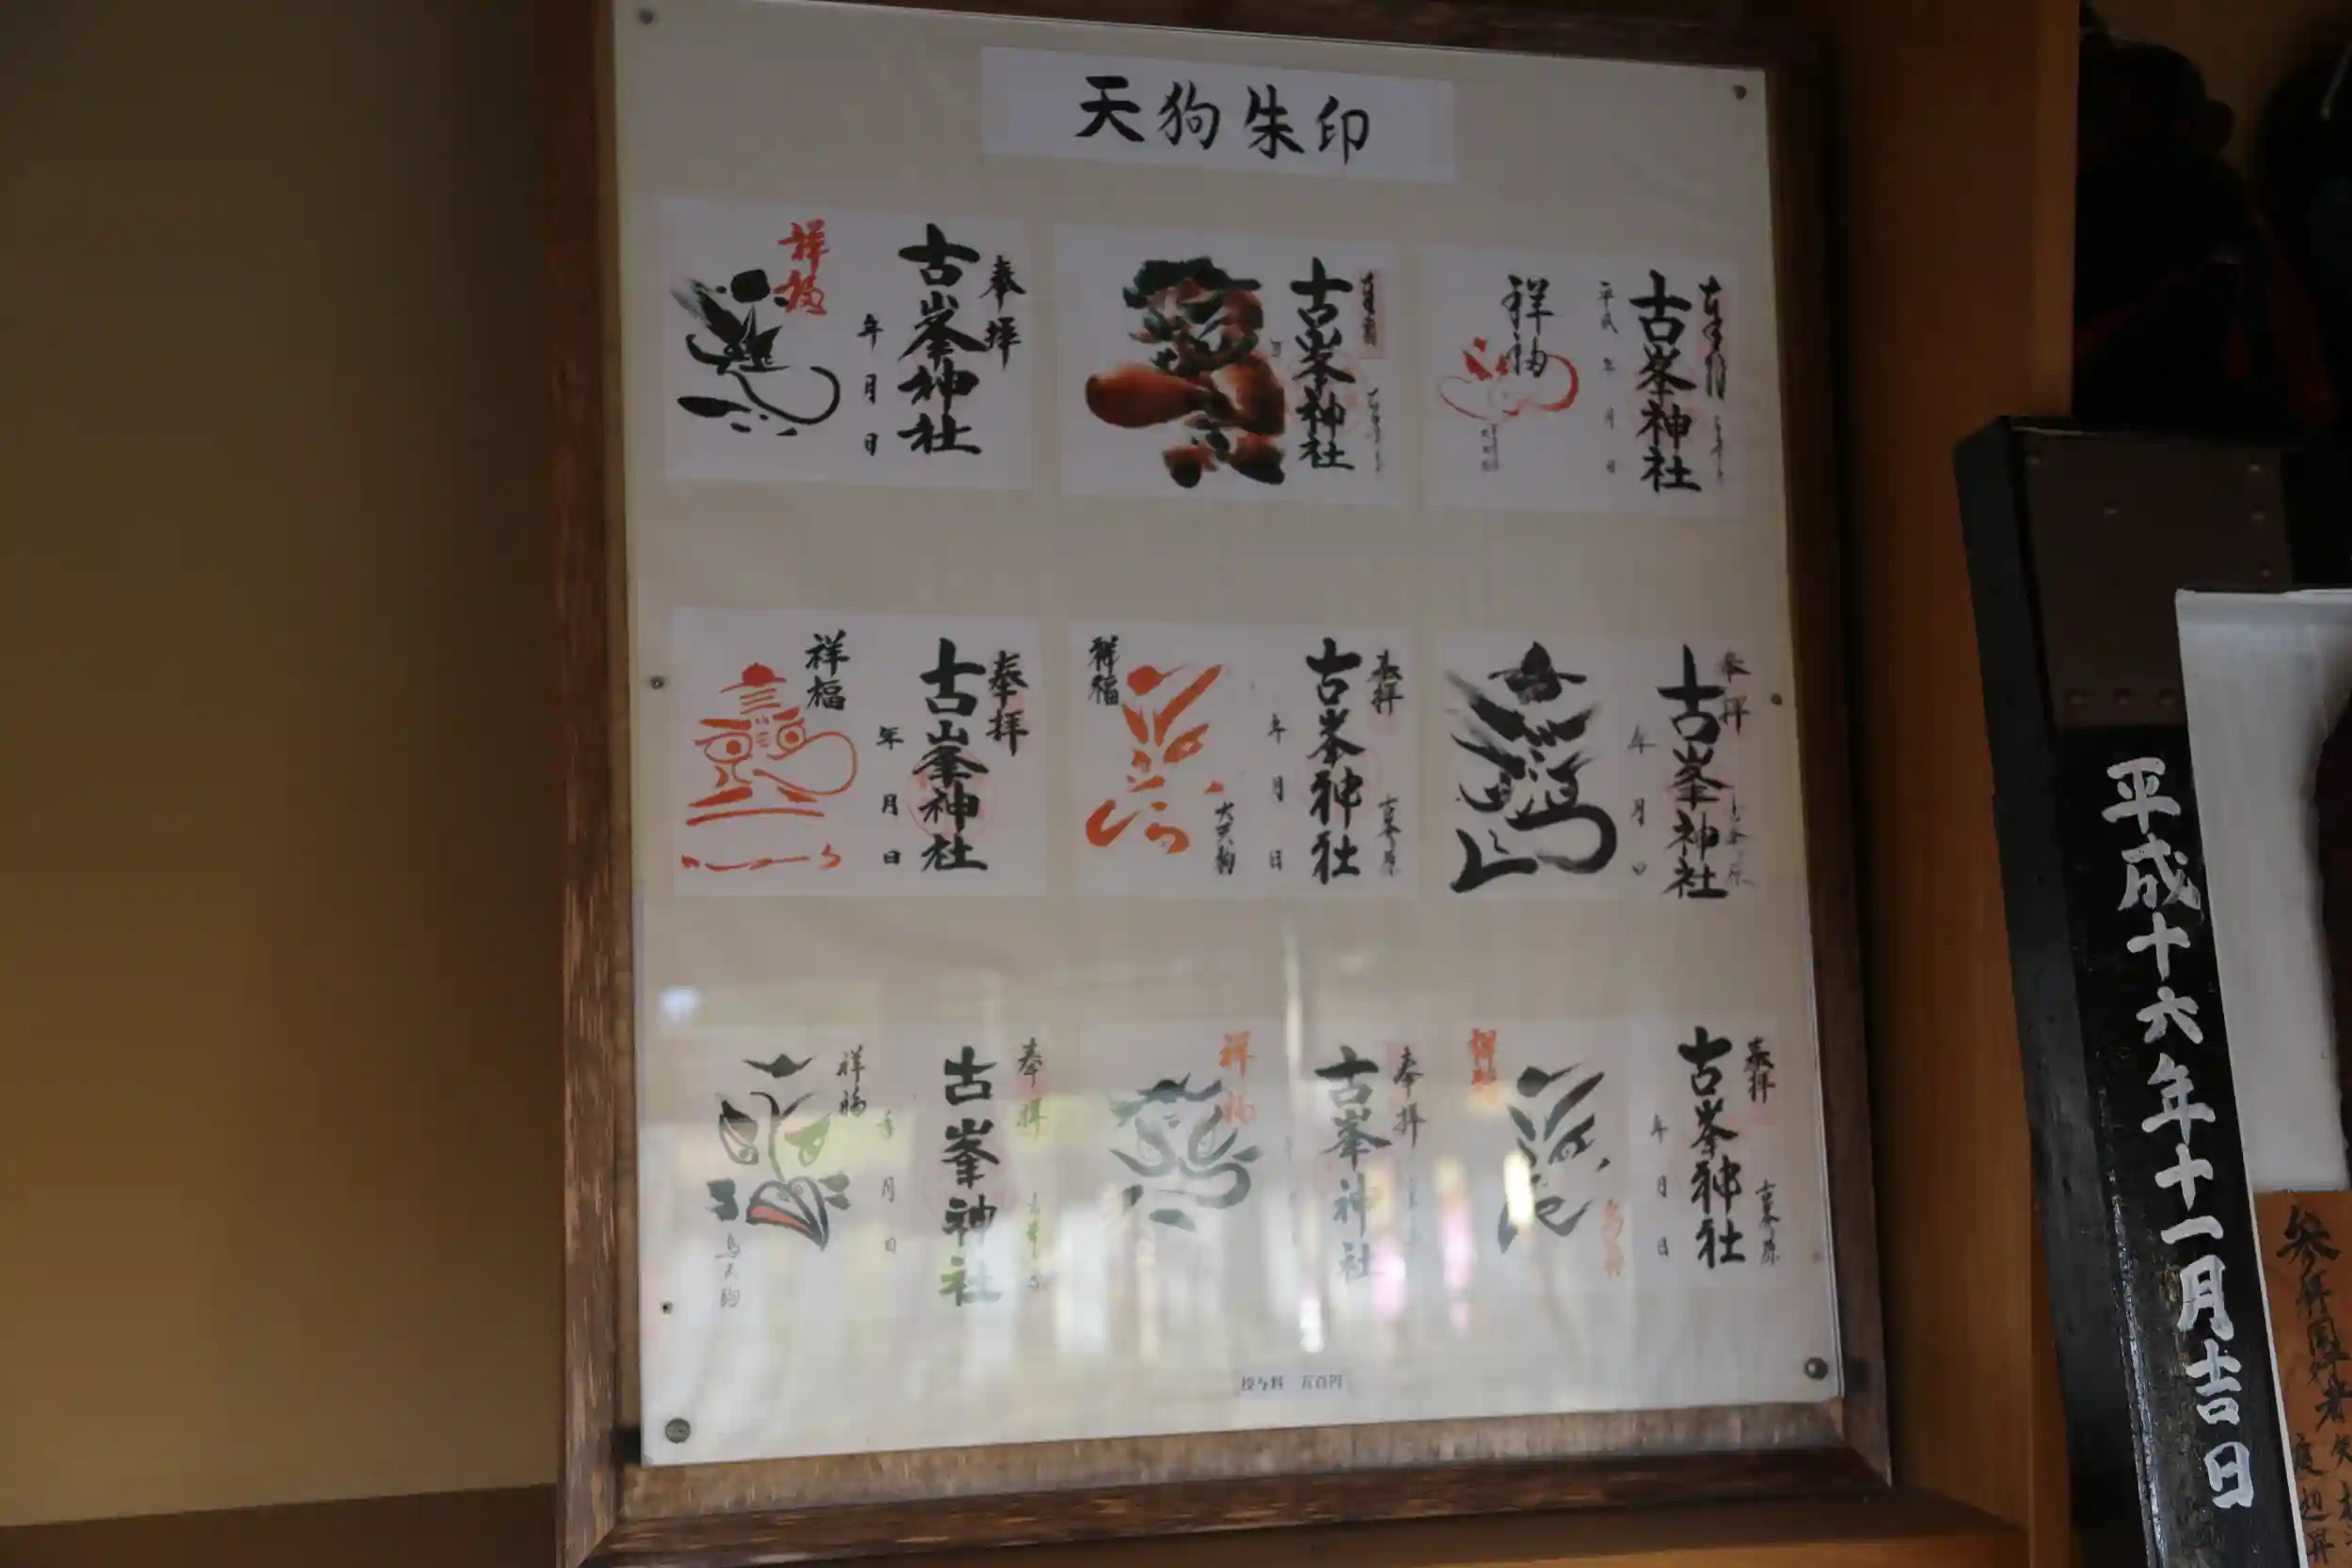 天狗朱印
奉拝
古峯神社
年 月 日
祥福
古峯神社
古峯神社
平成 年 月 日
祥福
奉拝
古峯神社
年 月 日
祥福
奉拝
古峯神社
年 月 日
大天狗
祥福
奉拝
古峯神社
年 月 日
奉拝
古峯神社
年 月 日
祥福
烏天狗
奉拝
古峯神社
祥福
奉拝
古峯神社
年 月 日
祥福
授与料 五百円
平成十六年十一月吉日